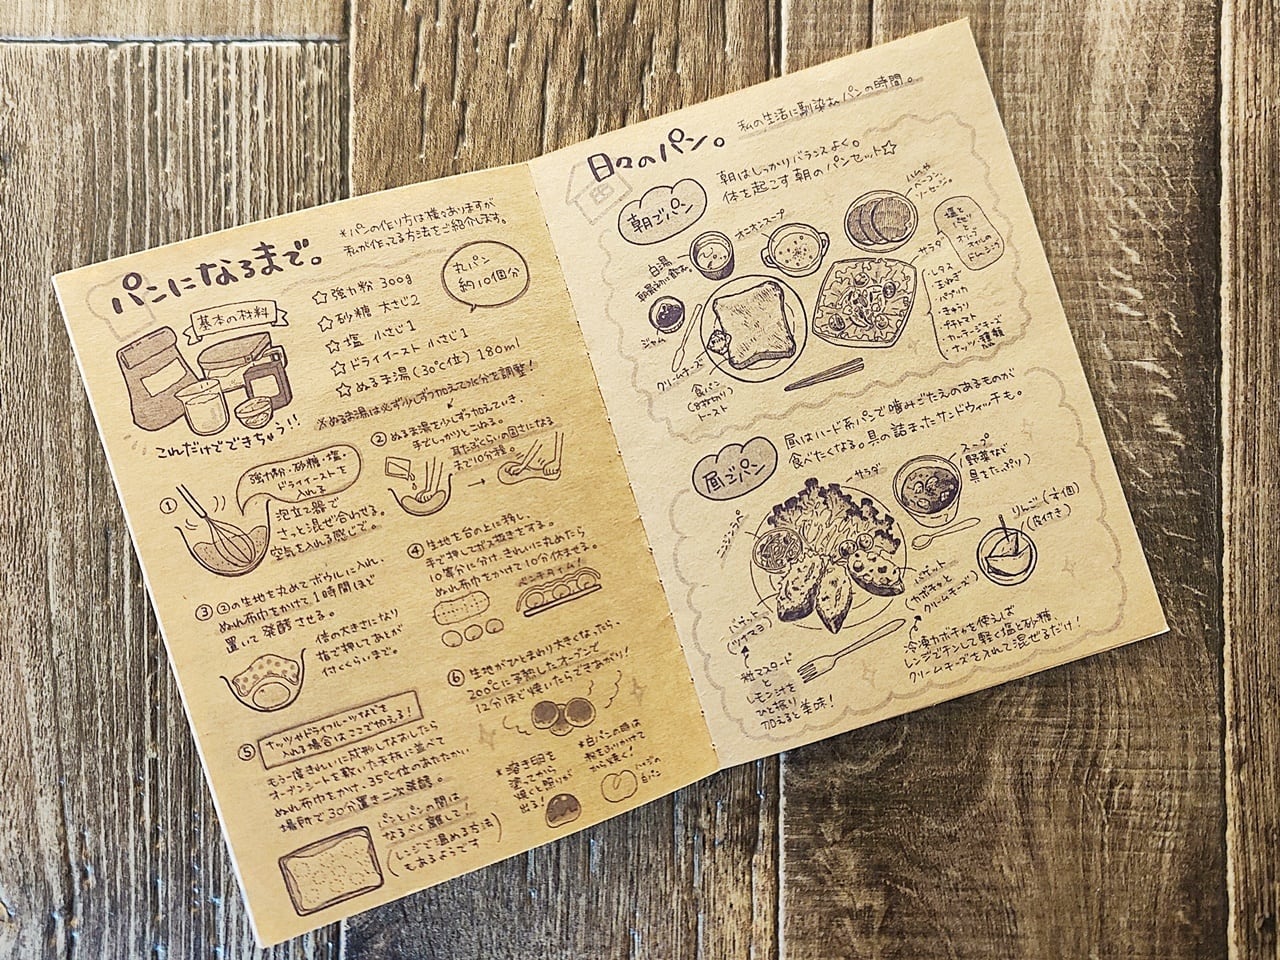 パンになるまで。
*パンの作り方は様々ありますが
私が作ってる方法をご紹介します。
基本の材料
これだけでできちゃう!!
☆強力粉 300g
☆砂糖 大さじ2
☆塩 小さじ1
☆ドライイースト 小さじ1
☆ぬるま湯(30℃位) 180ml
※ぬるま湯は必ず少しずつ加えて水分を調整!
丸パン
約10個分
①
強力粉・砂糖・塩・
ドライイーストを
入れる
泡立て器で
さっと混ぜ合わせる。
空気を入れる感じで。
② ぬるま湯を少しずつ加えていき、
手でしっかりとこねる。
耳たぶくらいの固さになる
まで10分程。
③ ②の生地を丸めてボウルに入れ、
ぬれ布巾をかけて1時間ほど
置いて発酵させる。
倍の大きさになり
指で押してあとが
付くくらいまで。
④ 生地を台の上に移し、
手で押してガス抜きをする。
10等分に分け、きれいに丸めたら
ぬれ布巾をかけて10分休ませる。
ベンチタイム!
⑤
ナッツやドライフルーツなどを
入れる場合はここで加える!
もう一度きれいに成形しなおしたら
オーブンシートを敷いた天板に並べて
ぬれ布巾をかけ、35℃位のあたたかい
場所で30分置き二次発酵。
パンとパンの間は
なるべく離して!
(レンジで温める方法
もあるようです)
⑥ 生地がひとまわり大きくなったら、
200℃に予熱したオーブンで
12分ほど焼いたらできあがり!
*溶き卵を
塗ってから
焼くと照りが
出る!
*白パンの時は
粉をふりかけて
から焼く!
ハイジの
白パン
日々のパン。
私の生活に馴染むパンの時間。
朝ごパン
朝はしっかりバランスよく。
体を起こす朝のパンセット☆
白湯
朝最初に飲む。
オニオンスープ
ハムや
ベーコン、
ソーセージ。
ジャム
クリームチーズ
食パン
(8枚切り)
トースト
サラダ
塩と
酢と
オリーブ
オイルの
ドレッシング
・レタス
・玉ねぎ
・パプリカ
・きゅうり
・プチトマト
・カッテージチーズ
・ナッツ2種類
昼ごパン
昼はハード系パンで噛みごたえのあるものが
食べたくなる。具の詰まったサンドウィッチも。
サラダ
スープ
(野菜など
具をたっぷり)
ニンジンラペ
りんご(1/4個)
(皮付き)
バゲット
(ツナマヨ)
粒マスタード
と
レモン汁を
ひと振り
加えると美味!
バゲット
(カボチャと
クリームチーズ)
冷凍カボチャを使えば
レンジでチンして軽く塩と砂糖、
クリームチーズを入れて混ぜるだけ!